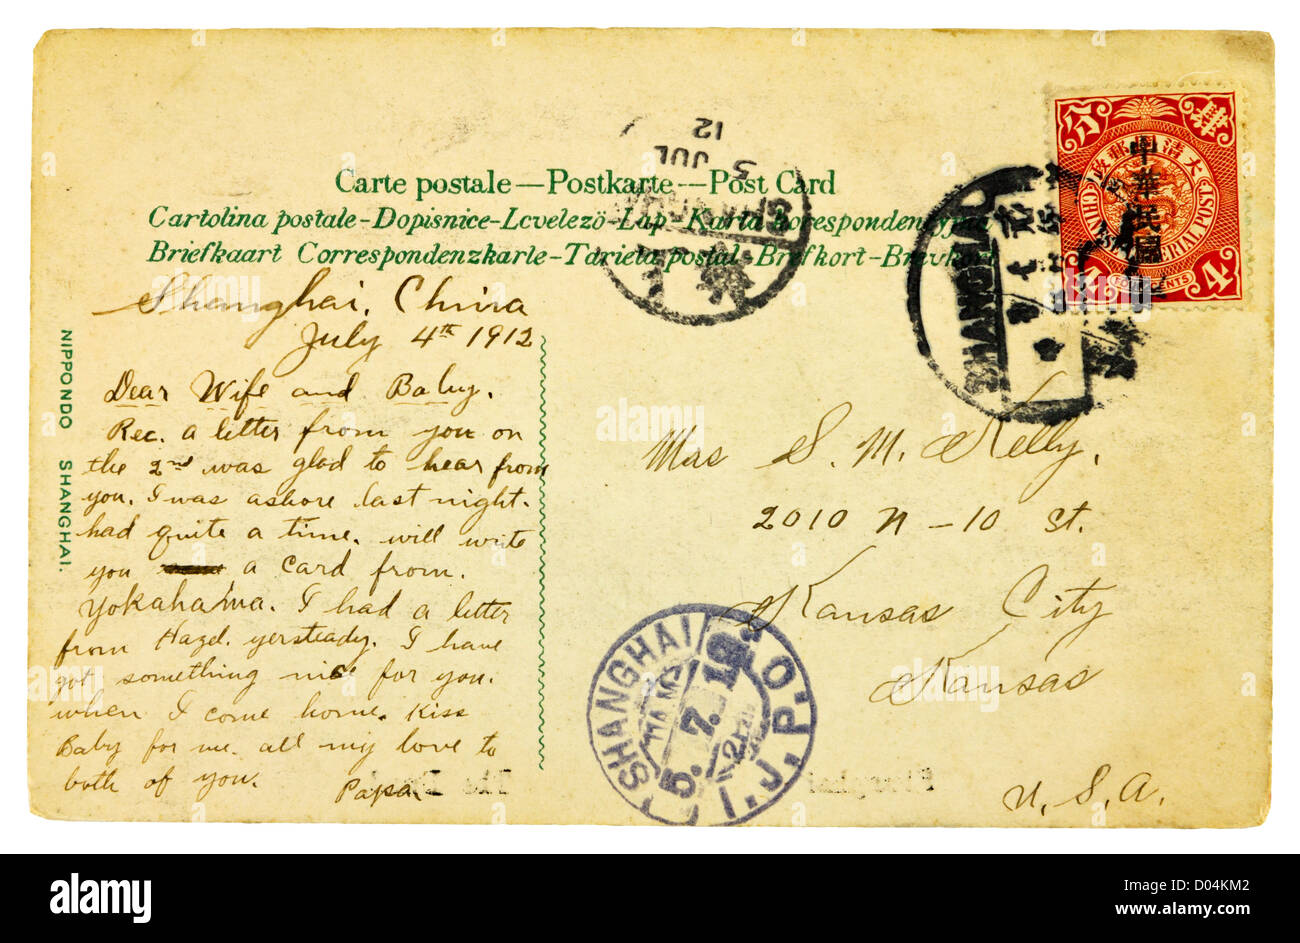 Carte postale — Postkarte — Post Card
Cartolina postale - Dopisnice - Levelezö - Lap - Karta korespondencyjna
Briefkaart Correspondenzkarte - Tarieta postal - Brefkort - Brevkort
NIPPONDO SHANGHAI.
Shanghai, China
July 4th 1912
Dear Wife and Baby.
Rec. a letter from you on
the 2nd was glad to hear from
you. I was ashore last night.
had quite a time. will write
you a card from.
Yokahama. I had a letter
from Hazel. yersteady. I have
got something nice for you.
when I come home. Kiss
Baby for me. all my love to
both of you.
Papa.
Mrs S. M. Kelly,
2010 N - 10 St.
Kansas City
Kansas
U. S. A.
SHANGHAI
5 JUL
12
SHANGHAI
大清郵政
中華民國
CHINESE IMPERIAL POST
4 4
FOUR CENTS
SHANGHAI I.J.P.O.
5. 7. 12.
alamy
Image ID: D04KM2
www.alamy.com